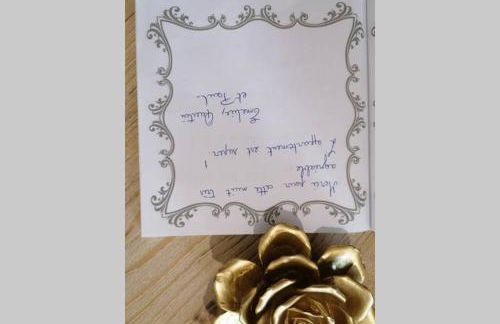 Merci pour cette nuit très
agréable
L'appartement est super !
Emeline, Quentin
et Paul.